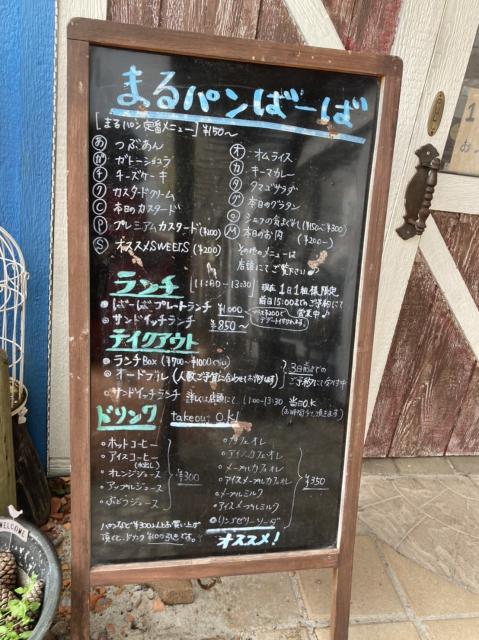 まるパンばーば
[まるパン定番メニュー] ¥150〜
あ つぶあん
ガ ガトーショコラ
チ チーズケーキ
ク カスタードクリーム
C 本日のカスタード
P プレミアムカスタード(¥200)
S オススメSWEETS (¥200)
オ オムライス
カ キーマカレー
タ タマゴサラダ
グ 本日のグラタン
シェフの気まぐれ(¥150〜¥300)
M 本日のお肉 (¥200〜)
その他のメニューは
店頭にてご覧下さい♪
ランチ [11:00-13:30]
ばーばプレートランチ ¥1000
サンドイッチランチ ¥850〜
現在1日1組様限定
前日15:00までのご予約にて
営業中♪
テイクアウト
ランチBox (¥700〜¥1000
オードブル (人数ご予算に合わせて
3日前までの
ご予約にて
サンドイッチランチ 詳しくは店頭にて 11:00-13:30 当日O.K
ドリンク takeout O.K!
ホットコーヒー
アイスコーヒー
(水出し)
オレンジジュース
アップルジュース
ぶどうジュース
¥300
カフェオレ
アイスカフェオレ
メープルカフェオレ
アイスメープルカフェオレ
メープルミルク
アイスメープルミルク
リンゴゼリーソーダ
¥350
パンなど¥300以上お買い上げ
頂くと、ドリンク¥100引きです。
オススメ!
WELCOME